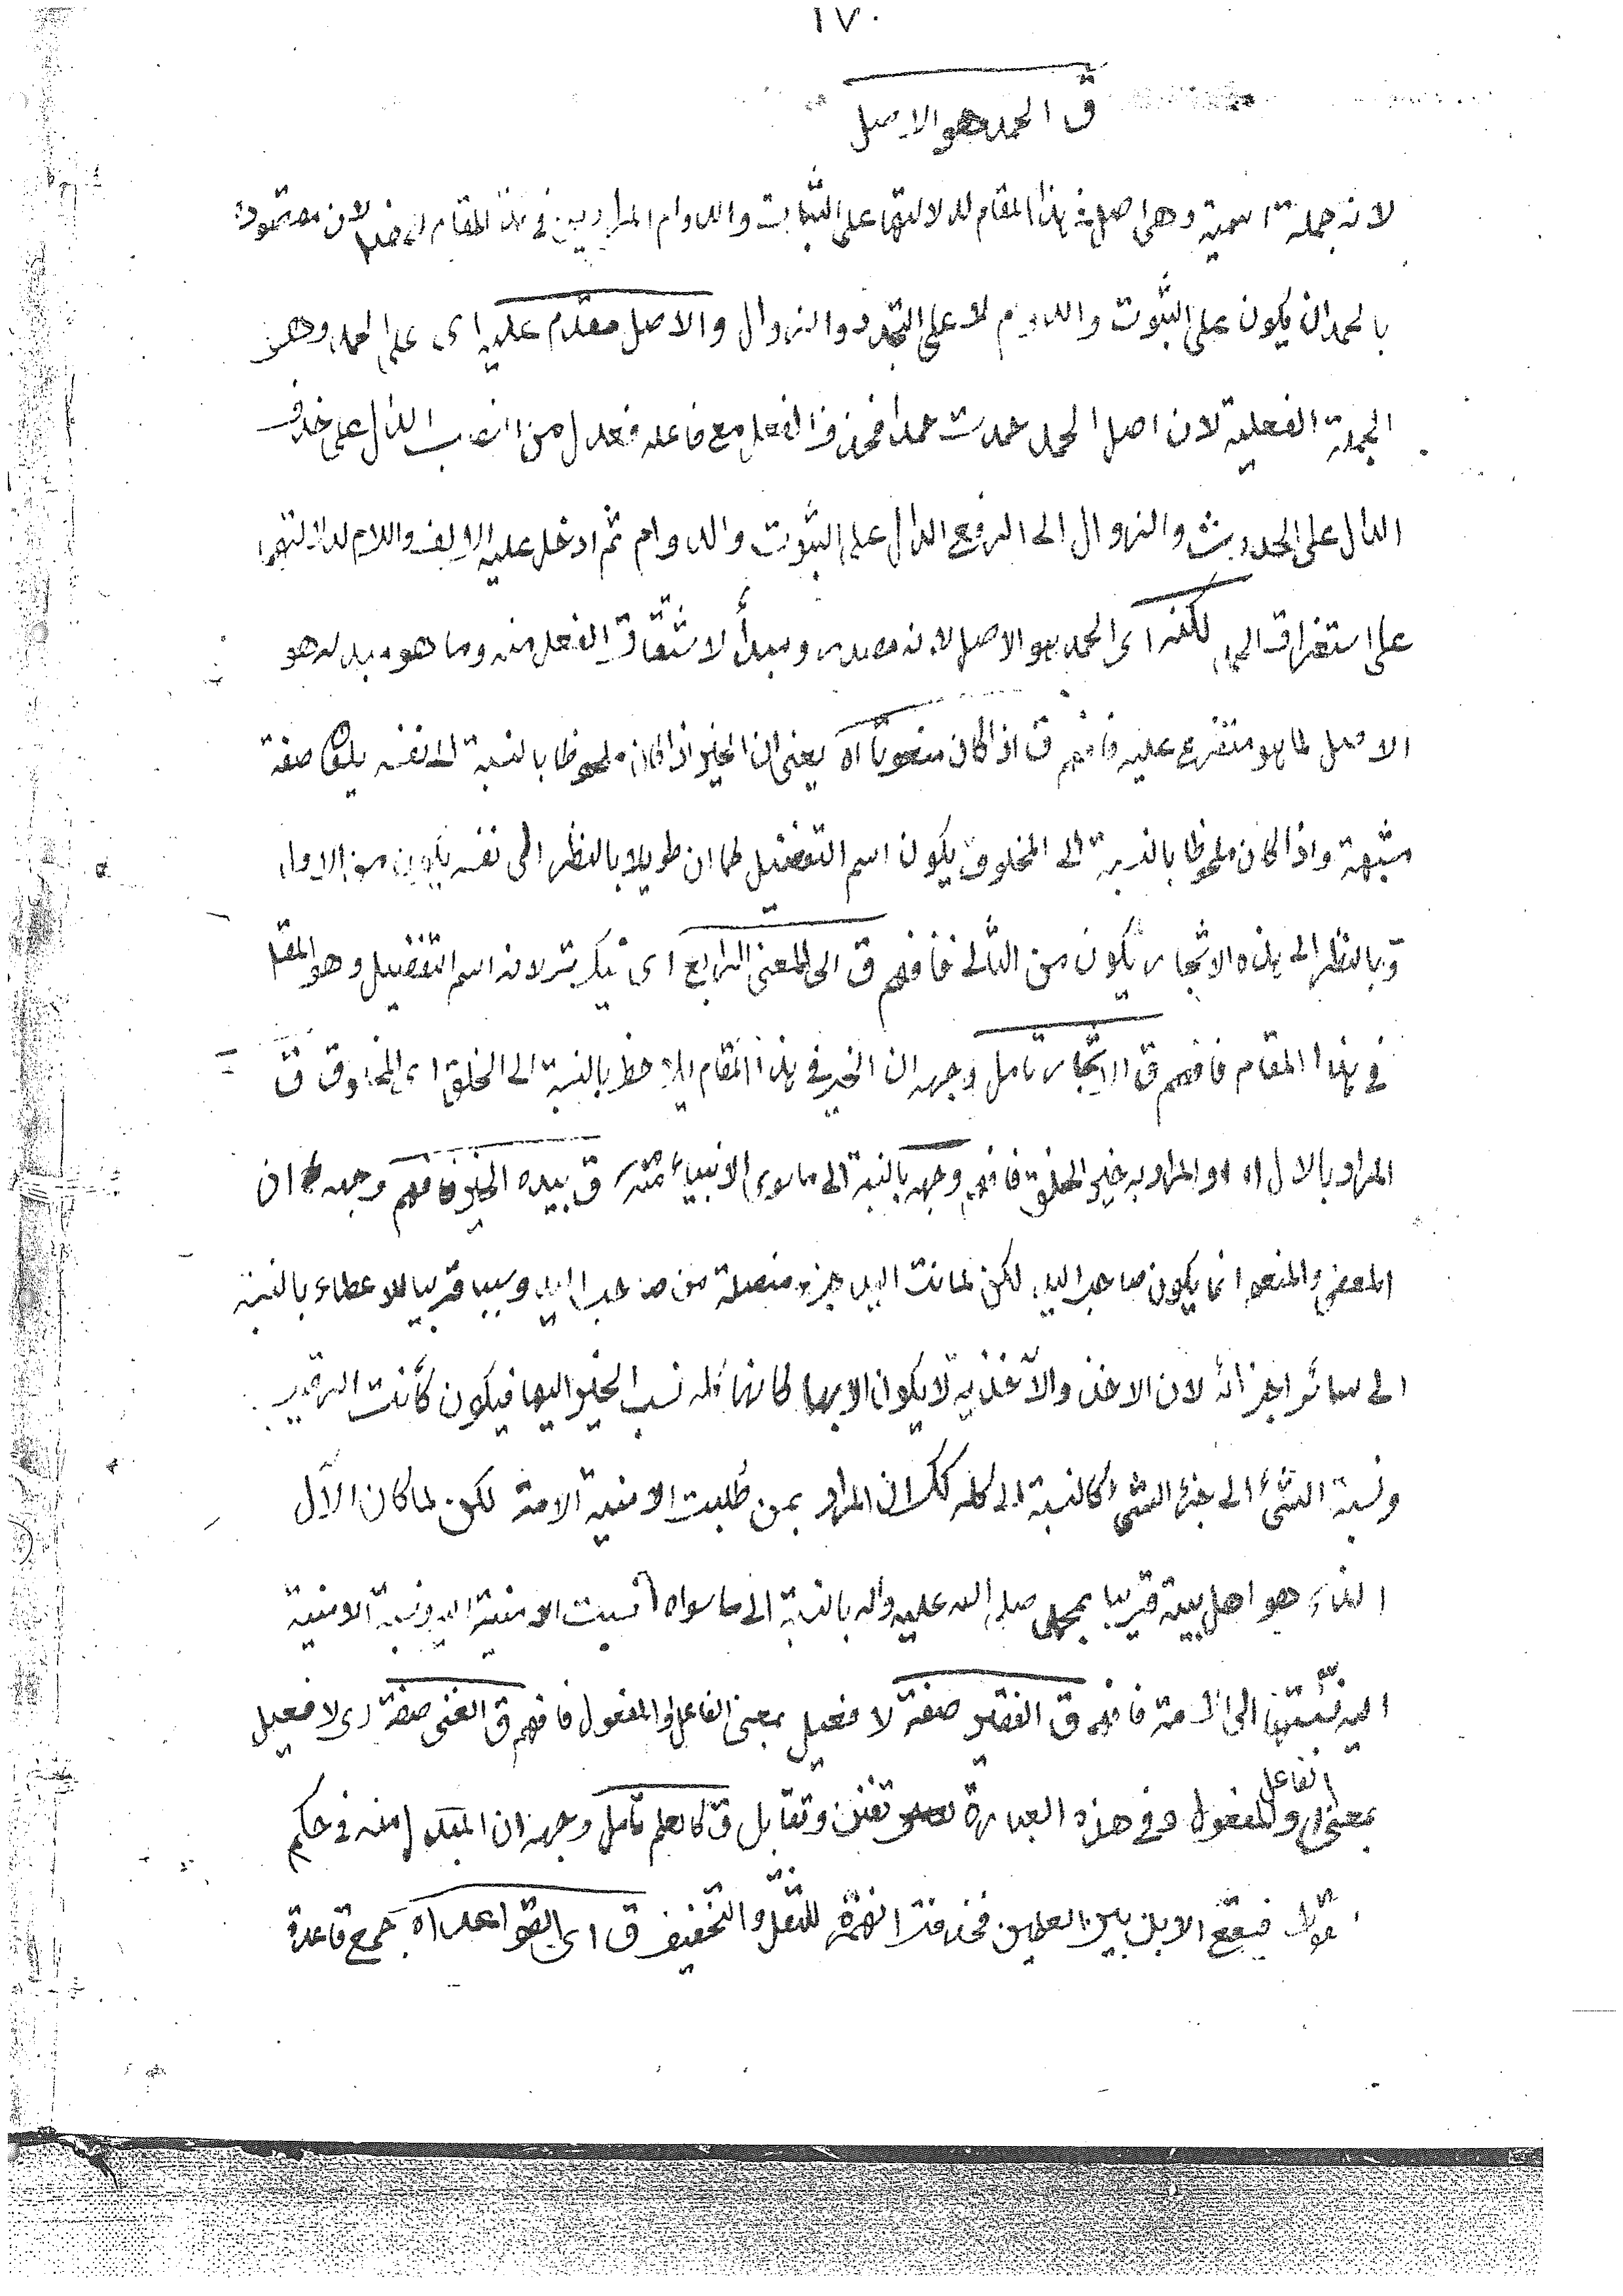 ١٧٠
ق الحمد هو الاصل
لانه جملة اسمية وهى اصل فى هذا المقام لدلالتها على الثبات والدوام المرادين فى هذا المقام لان
بالحمد ان يكون على الثبوت والدوام لا على التجدد والزوال والاصل مقدم عليه اى على الحمد وهو
الجملة الفعلية لان اصل الحمد حمدت حمدا فحذف الفعل مع فاعله فعدل من النصب الدال على
الدال على الحدوث والزوال الى الرفع الدال على الثبوت والدوام ثم ادخل عليه الالف واللام لدلالتهما
على استغراق لكنه اى الحمد هو الاصل لانه مصدر ومبدأ لاشتقاق الفعل منه وما هو مبدله هو
الاصل لما هو متفرع عليه فافهم ق اذا كان منعوتا اه يعنى ان الخير اذا كان ملحوظا بالنسبة الى نفسه يكون صفة
مشبهة واذا كان ملحوظا بالنسبة الى المخلوق يكون اسم التفضيل كما ان طويلا بالنظر الى نفسه يكون من الاول
وبالنظر الى هذه الاشجار يكون من الثانى فافهم ق الى المعنى الرابع اى لانه اسم التفضيل وهو
فى هذا المقام فافهم ق الاشجار تامل وجهه ان الخير فى هذا المقام يلاحظ بالنسبة الى الخلق اى المخلوق ق
المراد بالال اه والمراد به خير الخلق فافهم وجهه بالنسبة الى ما سوى الانبياء ق بيده الخير فافهم وجهه ان
المعطى والمنعم انما يكون صاحب اليد لكن لما كانت اليد جزء متصلة من صاحب اليد وسببا قريبا للاعطاء بالنسبة
الى سائر اجزائه لان الاخذ لا يكون الا بها كانها كله نسب الخير اليها فيكون
ونسبة الشئ الى جزء الشئ كالنسبة الى كله كك ان المراد بمن طلبت الامنية الامة لكن لما كان الآل
الذى هو اهل بيته قريبا بمحمد صلى الله عليه واله بالنسبة الى ما سواه نسبت الامنية اليه ونسبة الامنية
اليه نسبتها الى الامة فافهم ق الفقير صفة لا فعيل بمعنى الفاعل والمفعول فافهم ق الغنى صفة اى لا فعيل
بمعنى الفاعل والمفعول وفى هذه العبارة تفنن وتقابل ق كالعلم تامل وجهه ان المبدل منه فى حكم
فيقع الابن بين العلمين فحذفت الهمزة للثقل والتخفيف ق اى القواعد اه جمع قاعدة